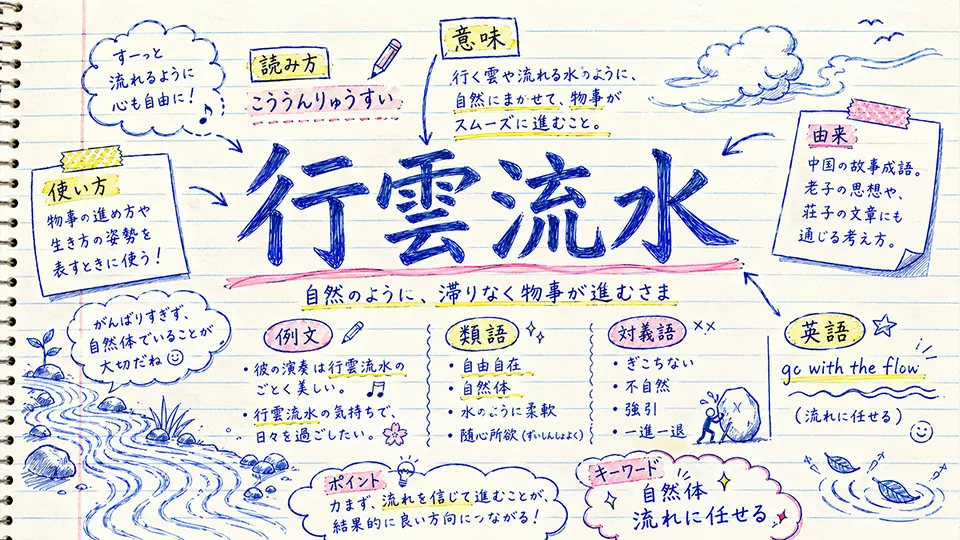 すーっと
流れるように
心も自由に!
読み方
こううんりゅうすい
意味
行く雲や流れる水のように、
自然にまかせて、物事が
スムーズに進むこと。
使い方
物事の進め方や
生き方の姿勢を
表すときに使う!
行雲流水
由来
中国の故事成語。
老子の思想や、
荘子の文章にも
通じる考え方。
自然のように、滞りなく物事が進むさま
がんばりすぎず、
自然体でいることが
大切だね
例文
・彼の演奏は行雲流水の
ごとく美しい。
・行雲流水の気持ちで、
日々を過ごしたい。
類語
・自由自在
・自然体
・水のように柔軟
・随心所欲(ずいしんしょよく)
対義語
・ぎこちない
・不自然
・強引
・一進一退
英語
go with the flow
(流れに任せる)
ポイント
力まず、流れを信じて進むことが、
結果的に良い方向につながる!
キーワード
自然体
流れに任せる